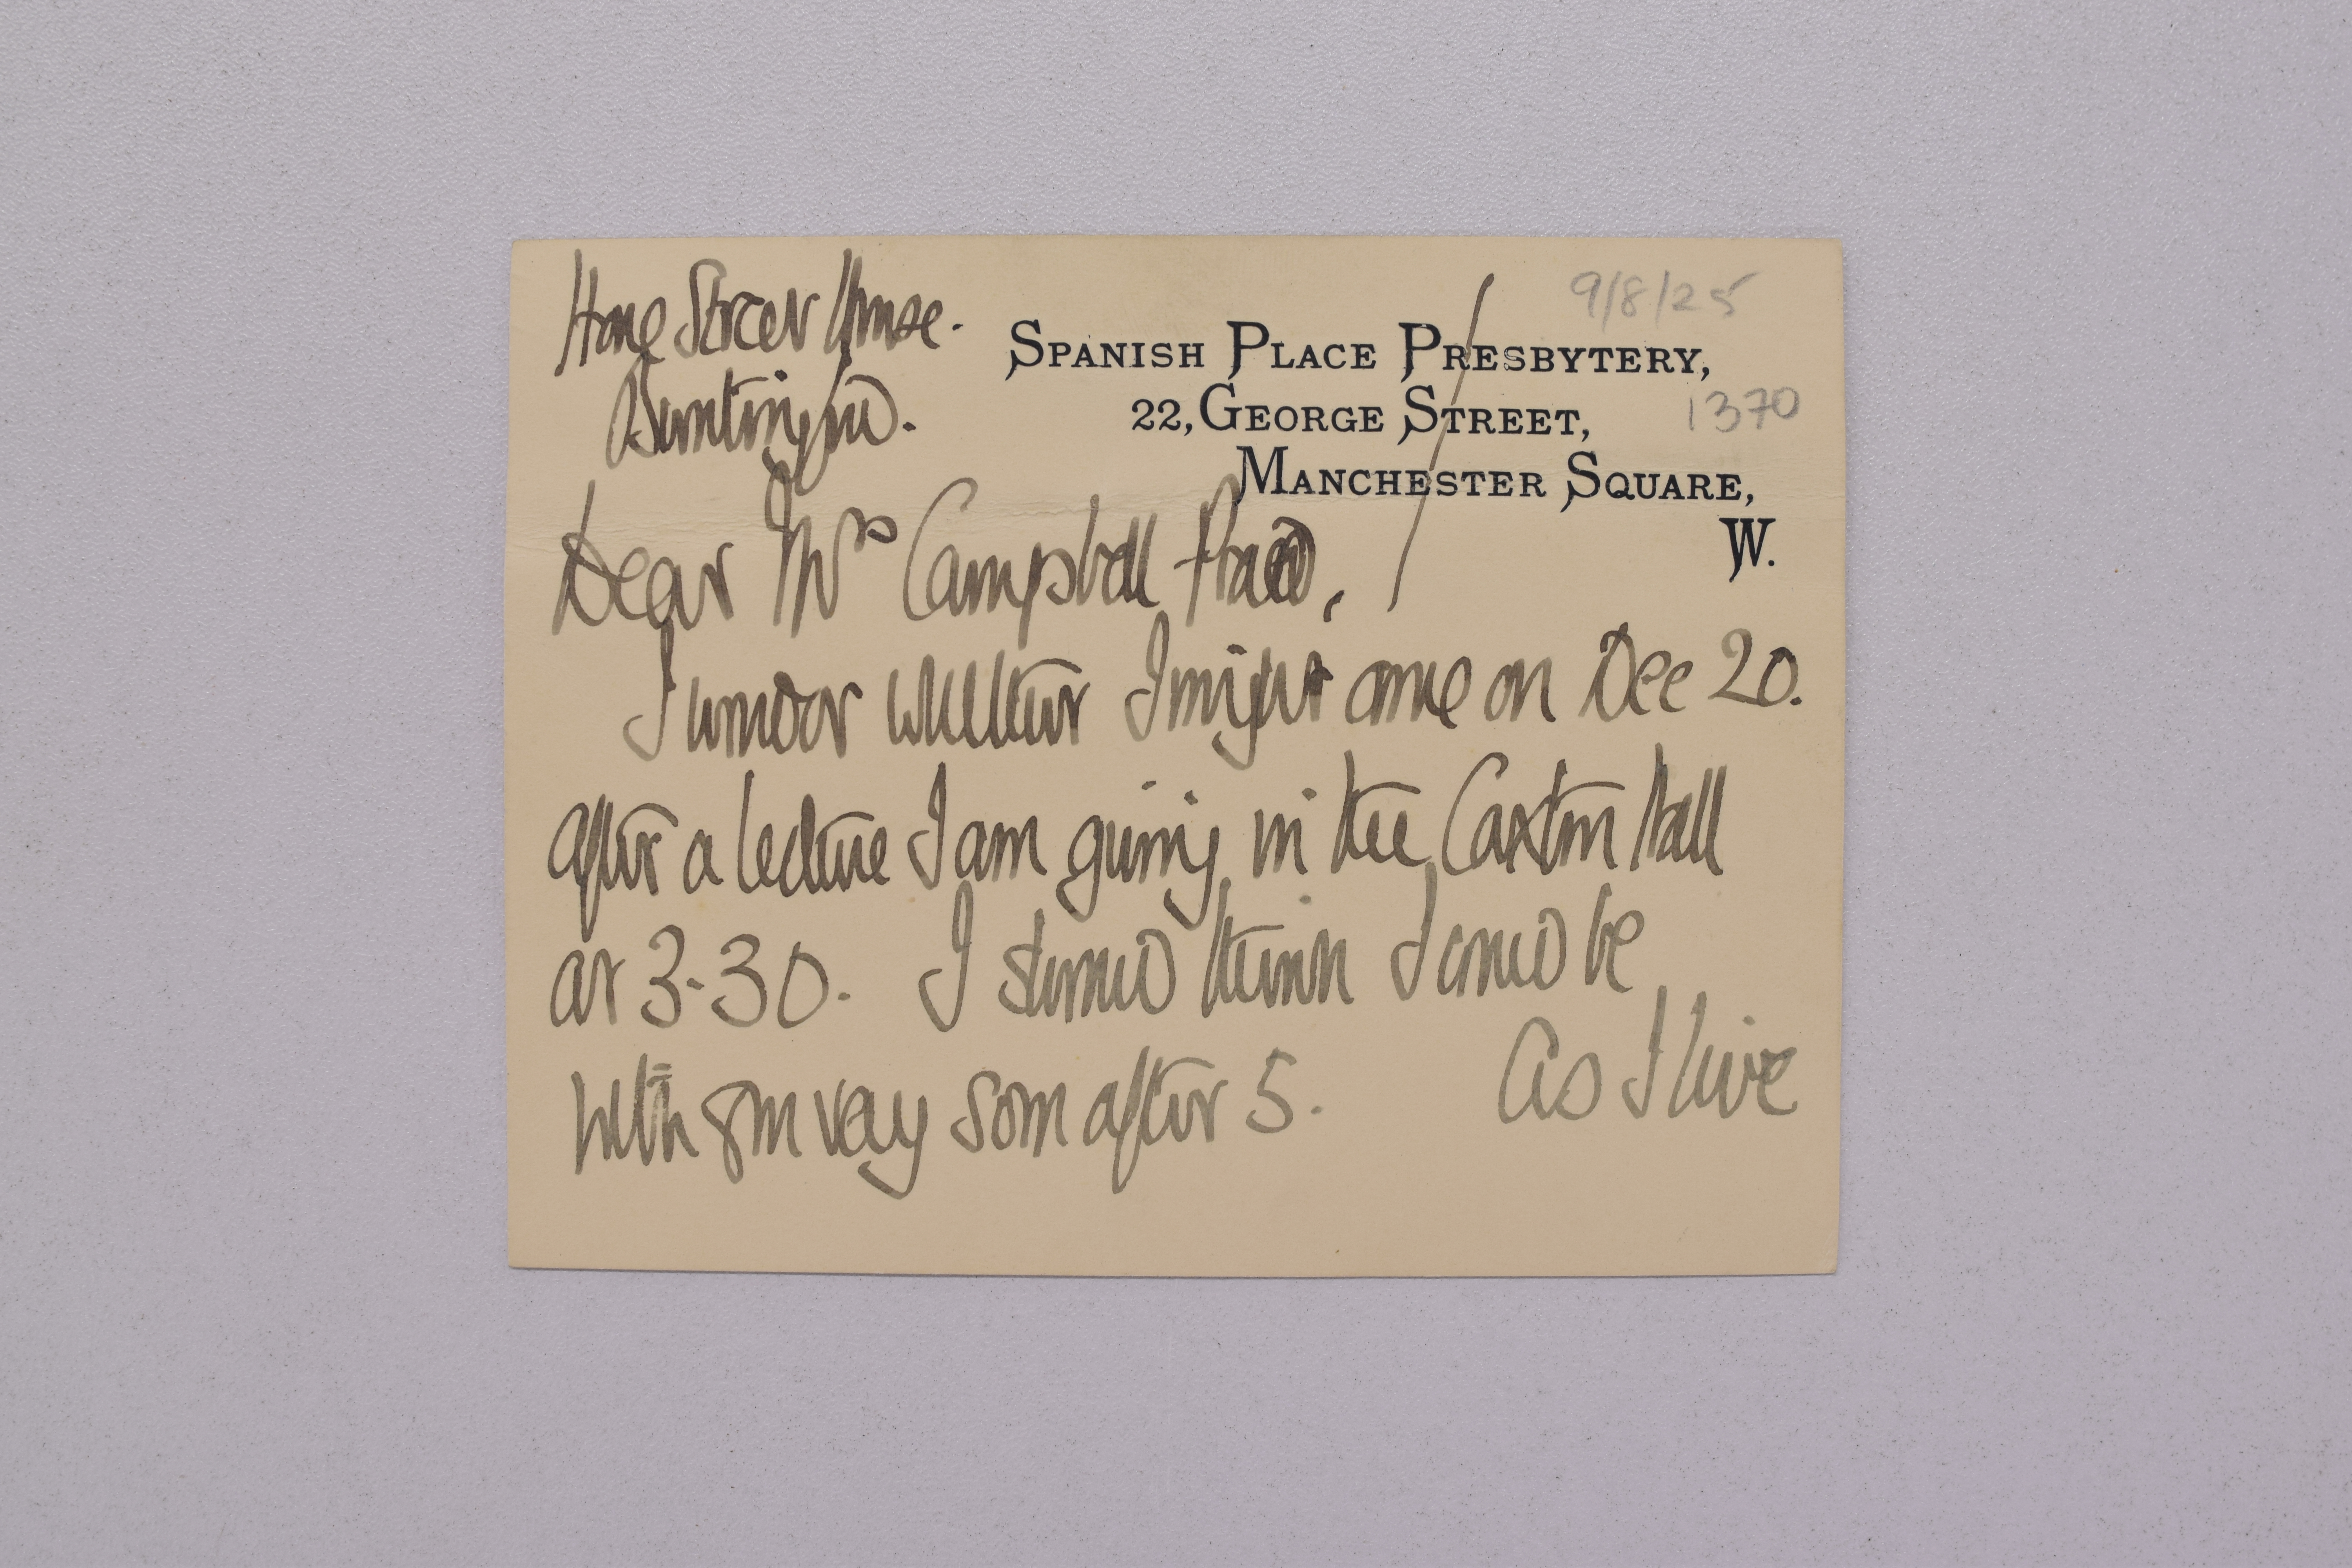 Hare Street House.
Buntingford.
9/8/25
SPANISH PLACE PRESBYTERY,
22, GEORGE STREET,
1370
MANCHESTER SQUARE,
W.
Dear Mrs Campbell Praed,
I wonder whether I might come on Dec 20.
after a lecture I am giving in the Caxton Hall
at 3-30. I should think I could be
with you very soon after 5. As I live